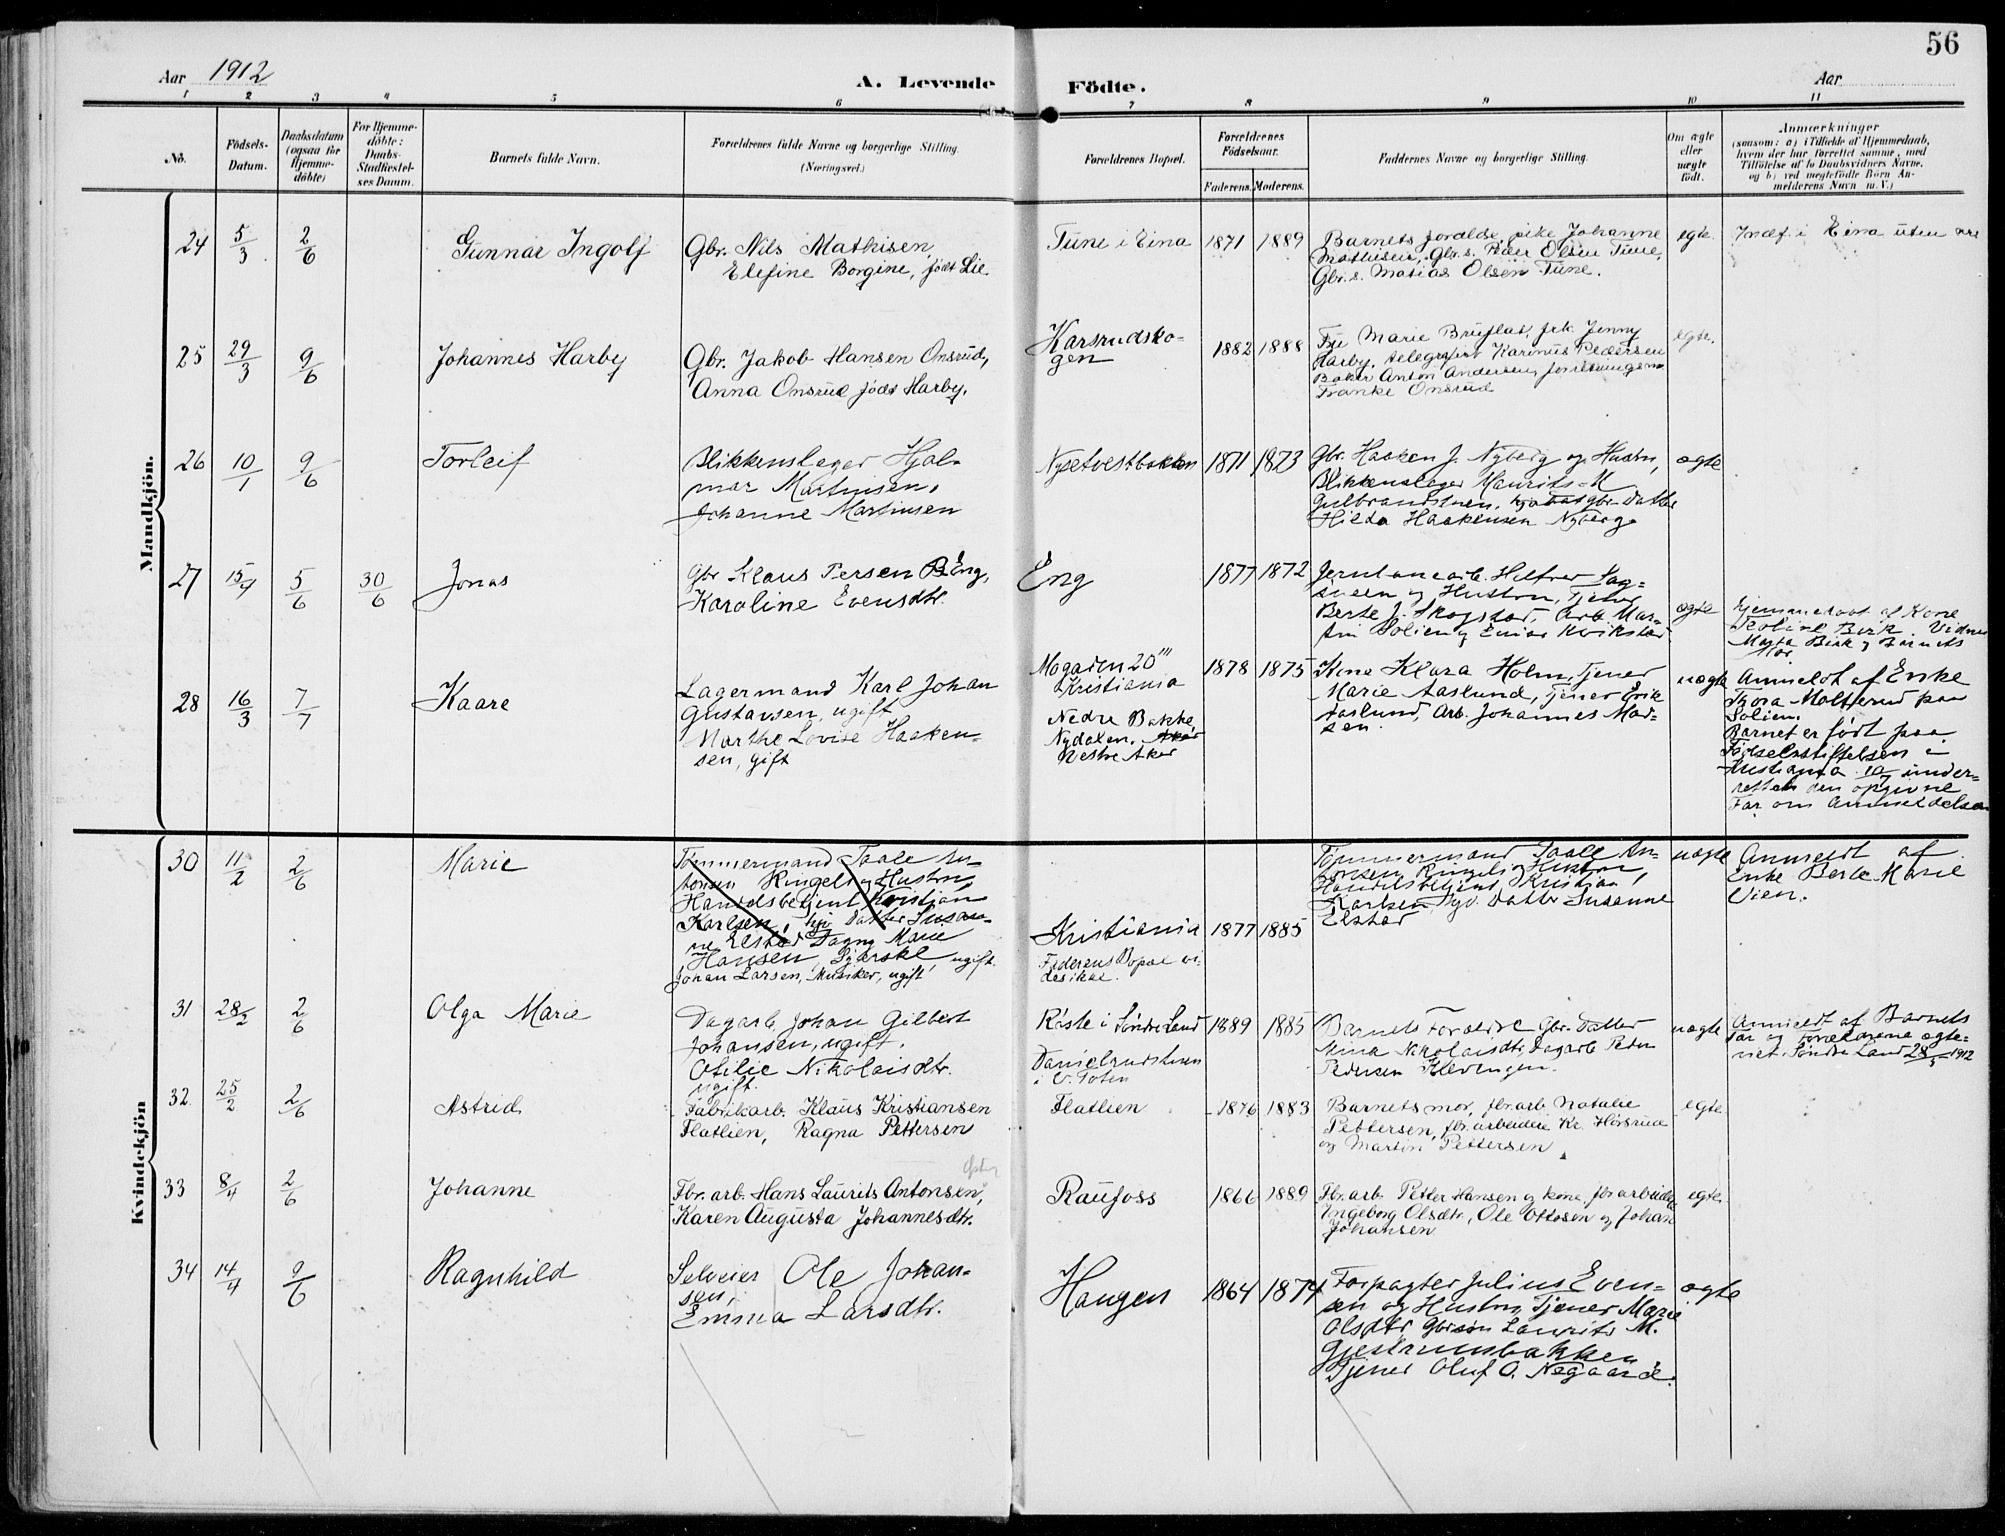 56
Aar 1912
A. Levende
Födte.
Aar
1 2 3 4 5 6 7 8 9 10 11
No.
Födsels-
Datum.
Daabsdatum
(ogsaa for
Hjemme-
döbte)
For Hjemme-
döbte:
Daabs-
Stadfæstel-
ses Datum.
Barnets fulde Navn.
Forældrenes fulde Navne og borgerlige Stilling.
(Næringsvei.)
Forældrenes Bopæl.
Forældrenes
Födselsaar.
Faderens. Moderens.
Faddernes Navne og borgerlige Stilling.
Om ægte
eller
uægte
födt.
Anmærkninger
(saasom: a) i Tilfælde af Hjemmedaab,
hvem der har forrettet samme, med
Tilföielse af to Daabsvidners Navne,
og b) ved uægtefödte Börn An-
melderens Navn m.V.)
Mandkjön.
24 5/3 2/6 Gunnar Ingolf
Gbr. Nils Mathisen,
Elefine Borgine, født Lie
Tune i Eina 1871 1889
Barnets forældre, pike Johanne
Mathisen, Gbr.s. Peder Olsen Tune,
Gbr.s. Matias Olsen Tune.
egte. Indf. i Eina uten nr.
25 29/3 9/6 Johannes Harby
Gbr. Jakob Hansen Onsrud,
Anna Onsrud født Harby.
Karsrudsko-
gen
1882 1888
Marie Bruflat, frk. Jenny
Harby, telegrafist Karinus Pedersen
Baker Anton Andersen,
Onsrud
egte.
26 10/1 9/6 Torleif
Blikkenslager Hjal-
mar Martinsen,
Johanne Martinsen
1871 1873
Gbr. Haaken J. Nyberg og Hustru,
Blikkenslager Maurits M
Gulbrandstuen, gbr Datter
Hilda Haakensen Nyberg
ægte
27 15/4 5/6 30/6 Jonas
Gbr Klaus Persen Eng,
Karoline Evensdtr.
Eng 1877 1872
og Hustru, Tjener
Berte J. Skogstad, Arb. Mar-
tin Solien og Einar Kvikstad
ægte
Hjemmedøbt af Kone
Berk Vidner
Marta Berk og Barnets
Mor
28 16/3 7/7 Kaare
Lagermand Karl Johan
Gustavsen, ugift
Marthe Lovise Haaken-
sen, gift
Mogaten 20'''
Kristiania
Nedre Bakke,
Nydalen, Aker
Vestre Aker
1878 1875
Kone Klara Holm, Tjener
Marie Aaslund, Tjener Erik
Aaslund, Arb. Johannes Mad-
sen.
uægte Anmeldt af Enke
Thora paa
Solien.
Barnet er født paa
Fødselsstiftelsen i
Kristiania 10/7 under-
rettet den opgivne
Far om Anmeldelsen
Kvindekjön
30 11/2 2/6 Marie
Tømmermand Taale An-
tonsen Ringeli og Hustru,
Handelsbetjent Kristian
Karlsen, Datter Susan-
ne Elstad Dagny Marie
Hansen, ugift.
Johan Larsen, Musiker, ugift
Kristiania
Faderens Bopæl vi-
des ikke.
1877 1885
Tømmermand Taale An-
tonsen Ringeli og Hustru,
Handelsbetjent Kristian
Karlsen, Datter Susanne
Elstad
uægte Anmeldt af
Enke Berte Marie
Vien.
31 28/2 2/6 Olga Marie
Dagarb. Johan Gilbert
Johansen, ugift.
Otilie Nikolaisdtr.
ugift.
Røste i Søndre Land
Danielrudstuen
i V. Toten
1889 1885
Barnets Forældre Gbr. Datter
Mina Nikolaisdtr, Dagarb Peder
Pedersen Klevengen.
uægte Anmeldt af Barnets
Far og Forældrene ægte-
viet Søndre Land 28/3 1912
32 25/2 2/6 Astrid
Fabrikarb. Klaus Kristiansen
Flatlien, Ragna Pettersen
Flatlien 1876 1883
Barnets mor, fbr.arb. Natalie
Pettersen, fbr.arbeidere Kr. Hørsrud
og Martin Pettersen
egte.
33 8/4 2/6 Johanne
Fbr. arb. Hans Laurits Antonsen,
Karen Augusta Johannesdtr.
Raufoss 1866 1889
Fbr.arb. Petter Hansen og kone, fbr.arbeider
Ingeborg Olsdtr, Ole Ottosen og Johan
Johansen
egte.
34 14/4 9/6 Ragnhild
Selveier Ole Johan-
sen,
Emma Larsdtr.
Haugen 1864 1874
Forpagter Julius Even-
sen og Hustru, Tjener Marie
Olsdtr, Gbrsøn Laurits M.
Gjestrumsbakken,
Tjener Oluf O. Negaard.
ægte